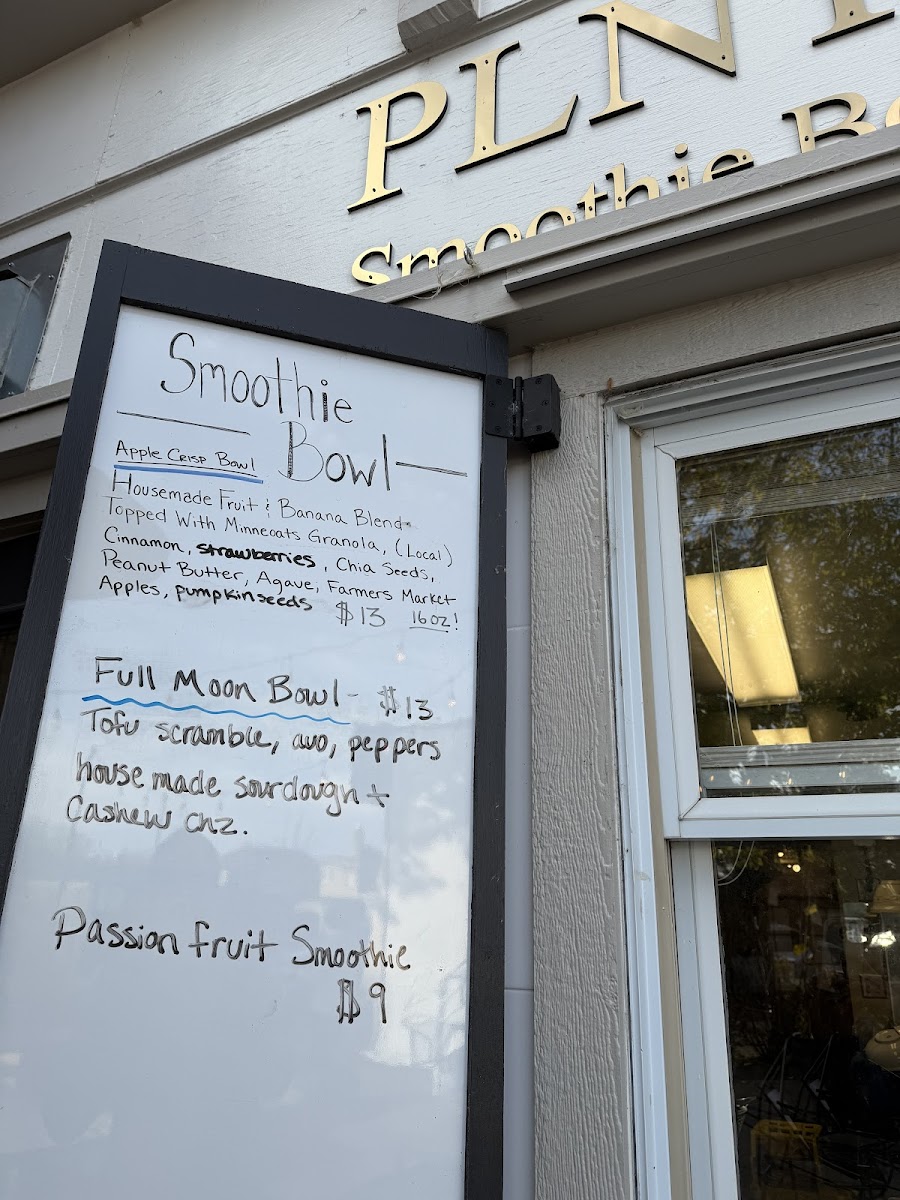 PLNT
Smoothie Bo
Smoothie
Bowl
Apple Crisp Bowl
Housemade Fruit & Banana Blend
Topped With Minneoats Granola, (Local)
Cinnamon, strawberries, Chia Seeds,
Peanut Butter, Agave, Farmers Market
Apples, pumpkinseeds $13 16oz!
Full Moon Bowl - $13
Tofu scramble, avo, peppers
house made sourdough +
Cashew chz.
Passion fruit Smoothie
$9